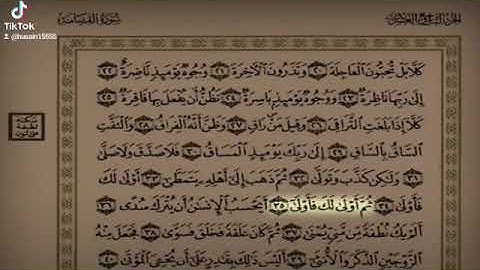 TikTok
سُورَةُ القِيَامَةِ
الجزء التاسع والعشرون
كَلَّا بَلْ تُحِبُّونَ ٱلْعَاجِلَةَ ٢٠ وَتَذَرُونَ ٱلْآخِرَةَ ٢١ وُجُوهٌ يَوْمَئِذٍ نَّاضِرَةٌ ٢٢
إِلَىٰ رَبِّهَا نَاظِرَةٌ ٢٣ وَوُجُوهٌ يَوْمَئِذٍ بَاسِرَةٌ ٢٤ تَظُنُّ أَن يُفْعَلَ بِهَا فَاقِرَةٌ ٢٥
كَلَّا إِذَا بَلَغَتِ ٱلتَّرَاقِىَ ٢٦ وَقِيلَ مَنْ رَاقٍ ٢٧ وَظَنَّ أَنَّهُ ٱلْفِرَاقُ ٢٨ وَٱلْتَفَّتِ
ٱلسَّاقُ بِٱلسَّاقِ ٢٩ إِلَىٰ رَبِّكَ يَوْمَئِذٍ ٱلْمَسَاقُ ٣٠ فَلَا صَدَّقَ وَلَا صَلَّىٰ ٣١
وَلَٰكِن كَذَّبَ وَتَوَلَّىٰ ٣٢ ثُمَّ ذَهَبَ إِلَىٰ أَهْلِهِ يَتَمَطَّىٰ ٣٣ أَوْلَىٰ لَكَ
فَأَوْلَىٰ ٣٤ ثُمَّ أَوْلَىٰ لَكَ فَأَوْلَىٰ ٣٥ أَيَحْسَبُ ٱلْإِنسَٰنُ أَن يُتْرَكَ سُدًى ٣٦
أَلَمْ يَكُ نُطْفَةً مِّن مَّنِىٍّ يُمْنَىٰ ٣٧ ثُمَّ كَانَ عَلَقَةً فَخَلَقَ فَسَوَّىٰ ٣٨ فَجَعَلَ مِنْهُ
ٱلزَّوْجَيْنِ ٱلذَّكَرَ وَٱلْأُنثَىٰ ٣٩ أَلَيْسَ ذَٰلِكَ بِقَٰدِرٍ عَلَىٰ أَن يُحْـِۧىَ ٱلْمَوْتَىٰ ٤٠
سكتة
لطيفة